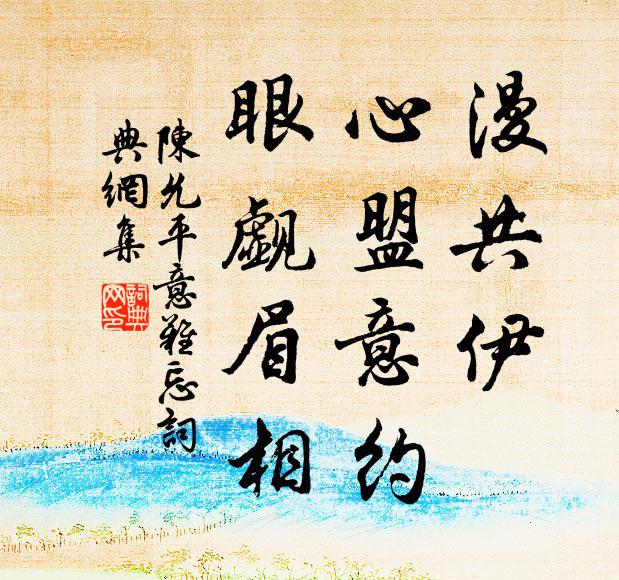 漫共伊
心盟意約
眼覷眉相
陳允平意難忘詞
典網集
詞典網印